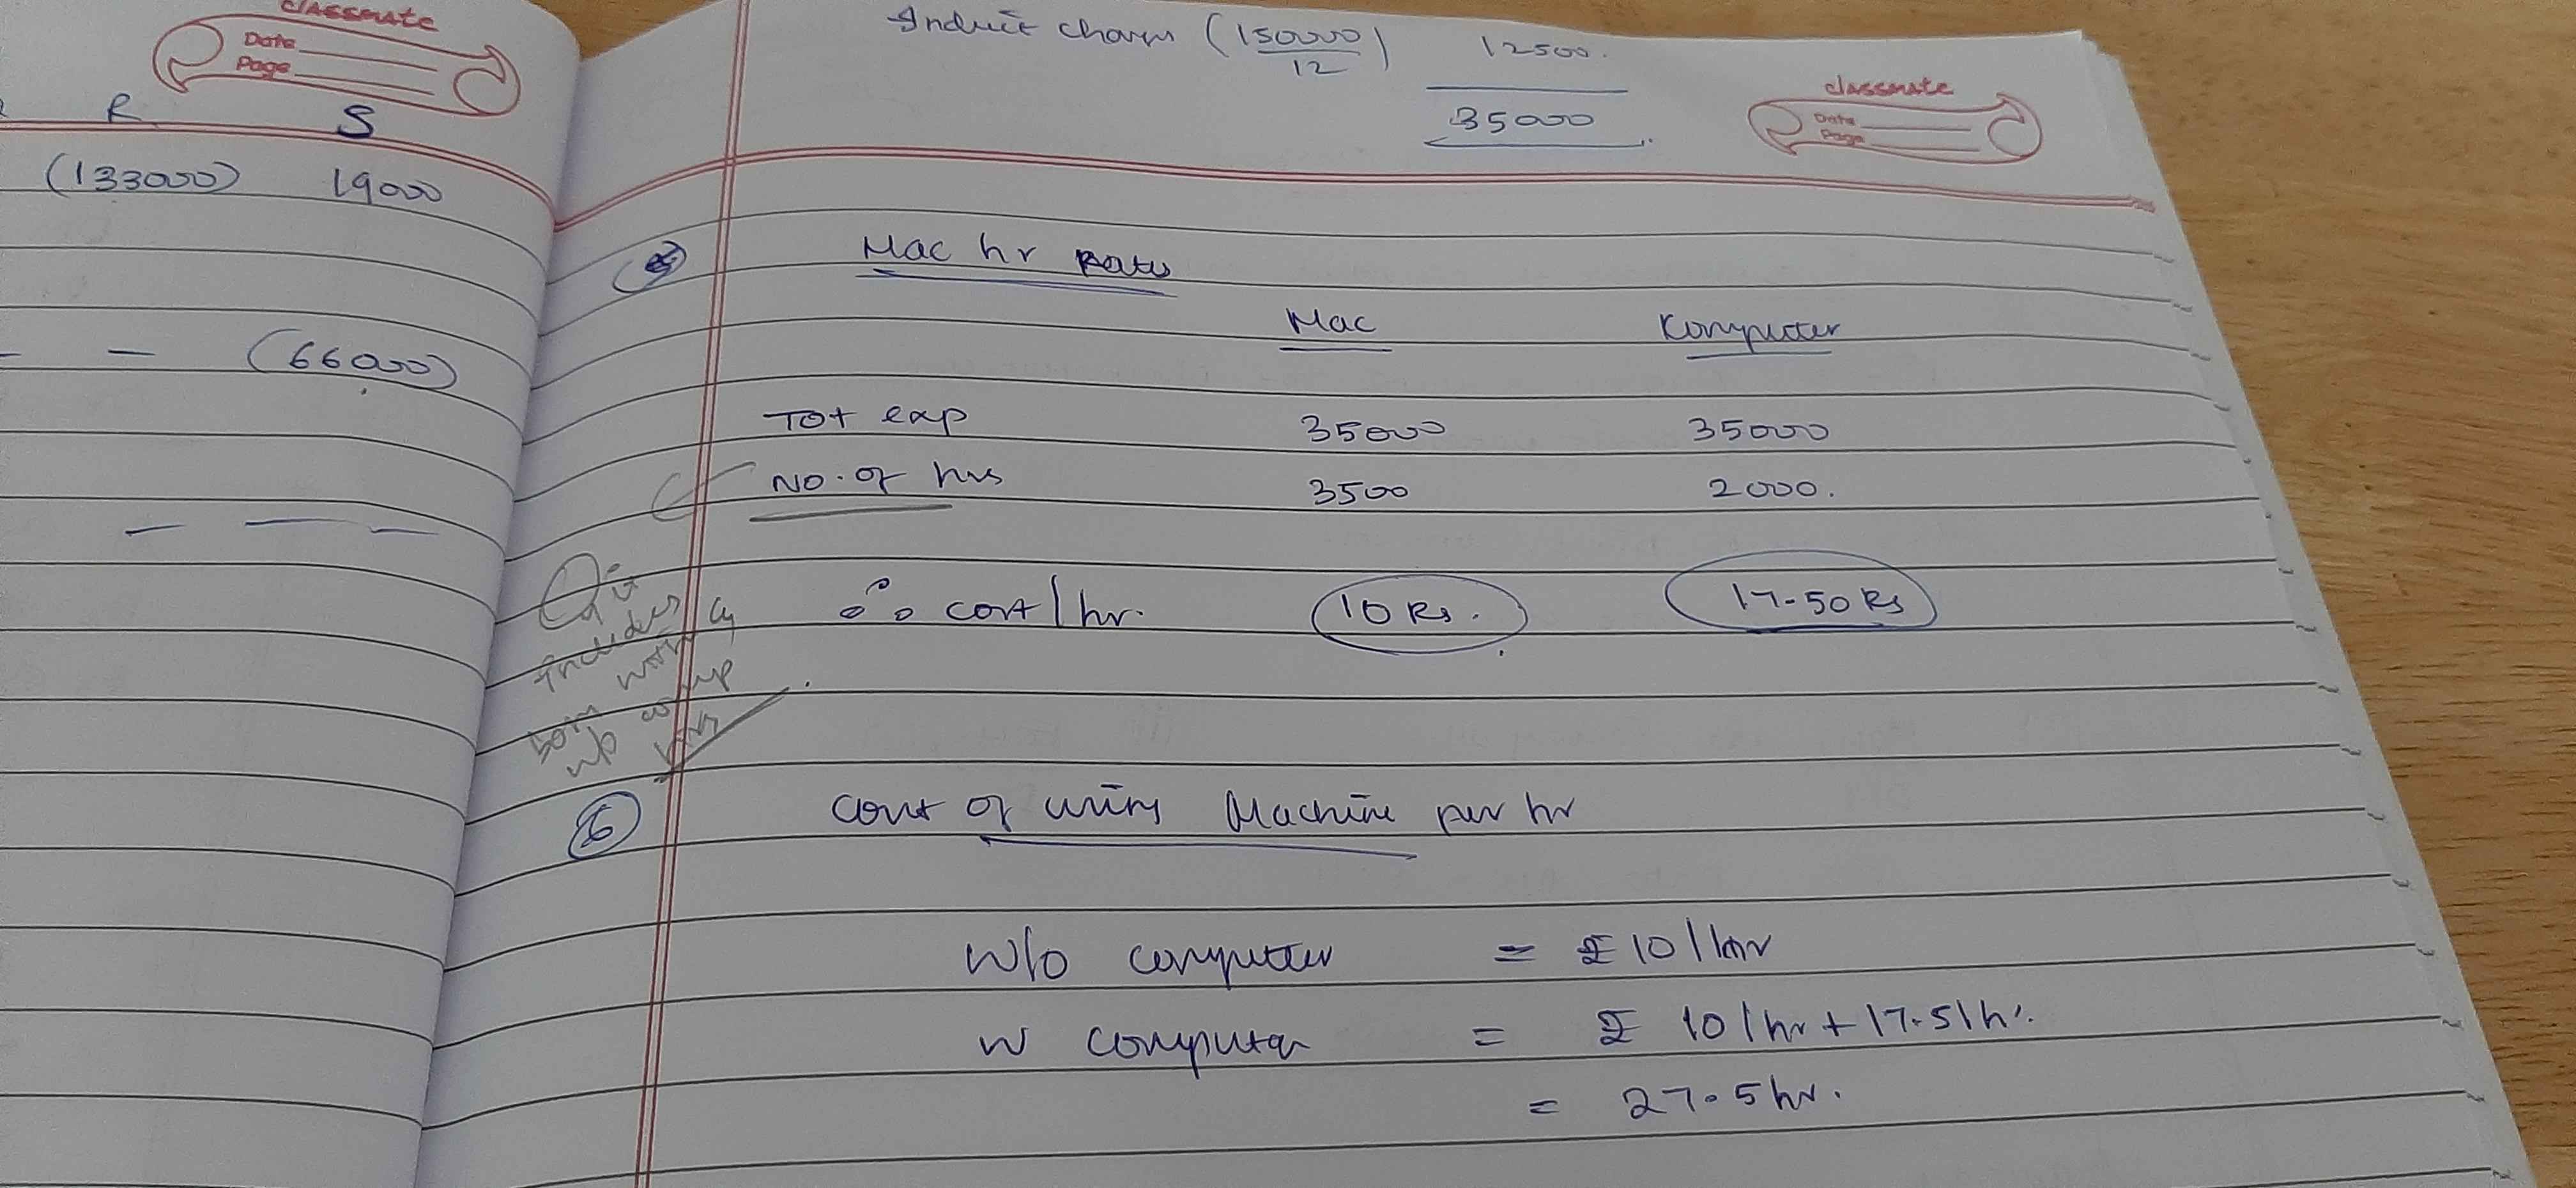 classmate
Date
Page
R S
(133000) 19000
— — (66000)
Indirect charges (150000/12) 12500.
35000
classmate
Date
Page
Mac hr Rates
Mac Computer
Tot exp 35000 35000
No. of hrs 3500 2000.
it includes
both with &
w/o comp
hrs
∴ cost/hr. 10 Rs. 17.50 Rs
6 Cost of using Machine per hr
w/o computer = ₹ 10/hr
w computer = ₹ 10/hr + 17.5/hr.
= 27.5 hr.